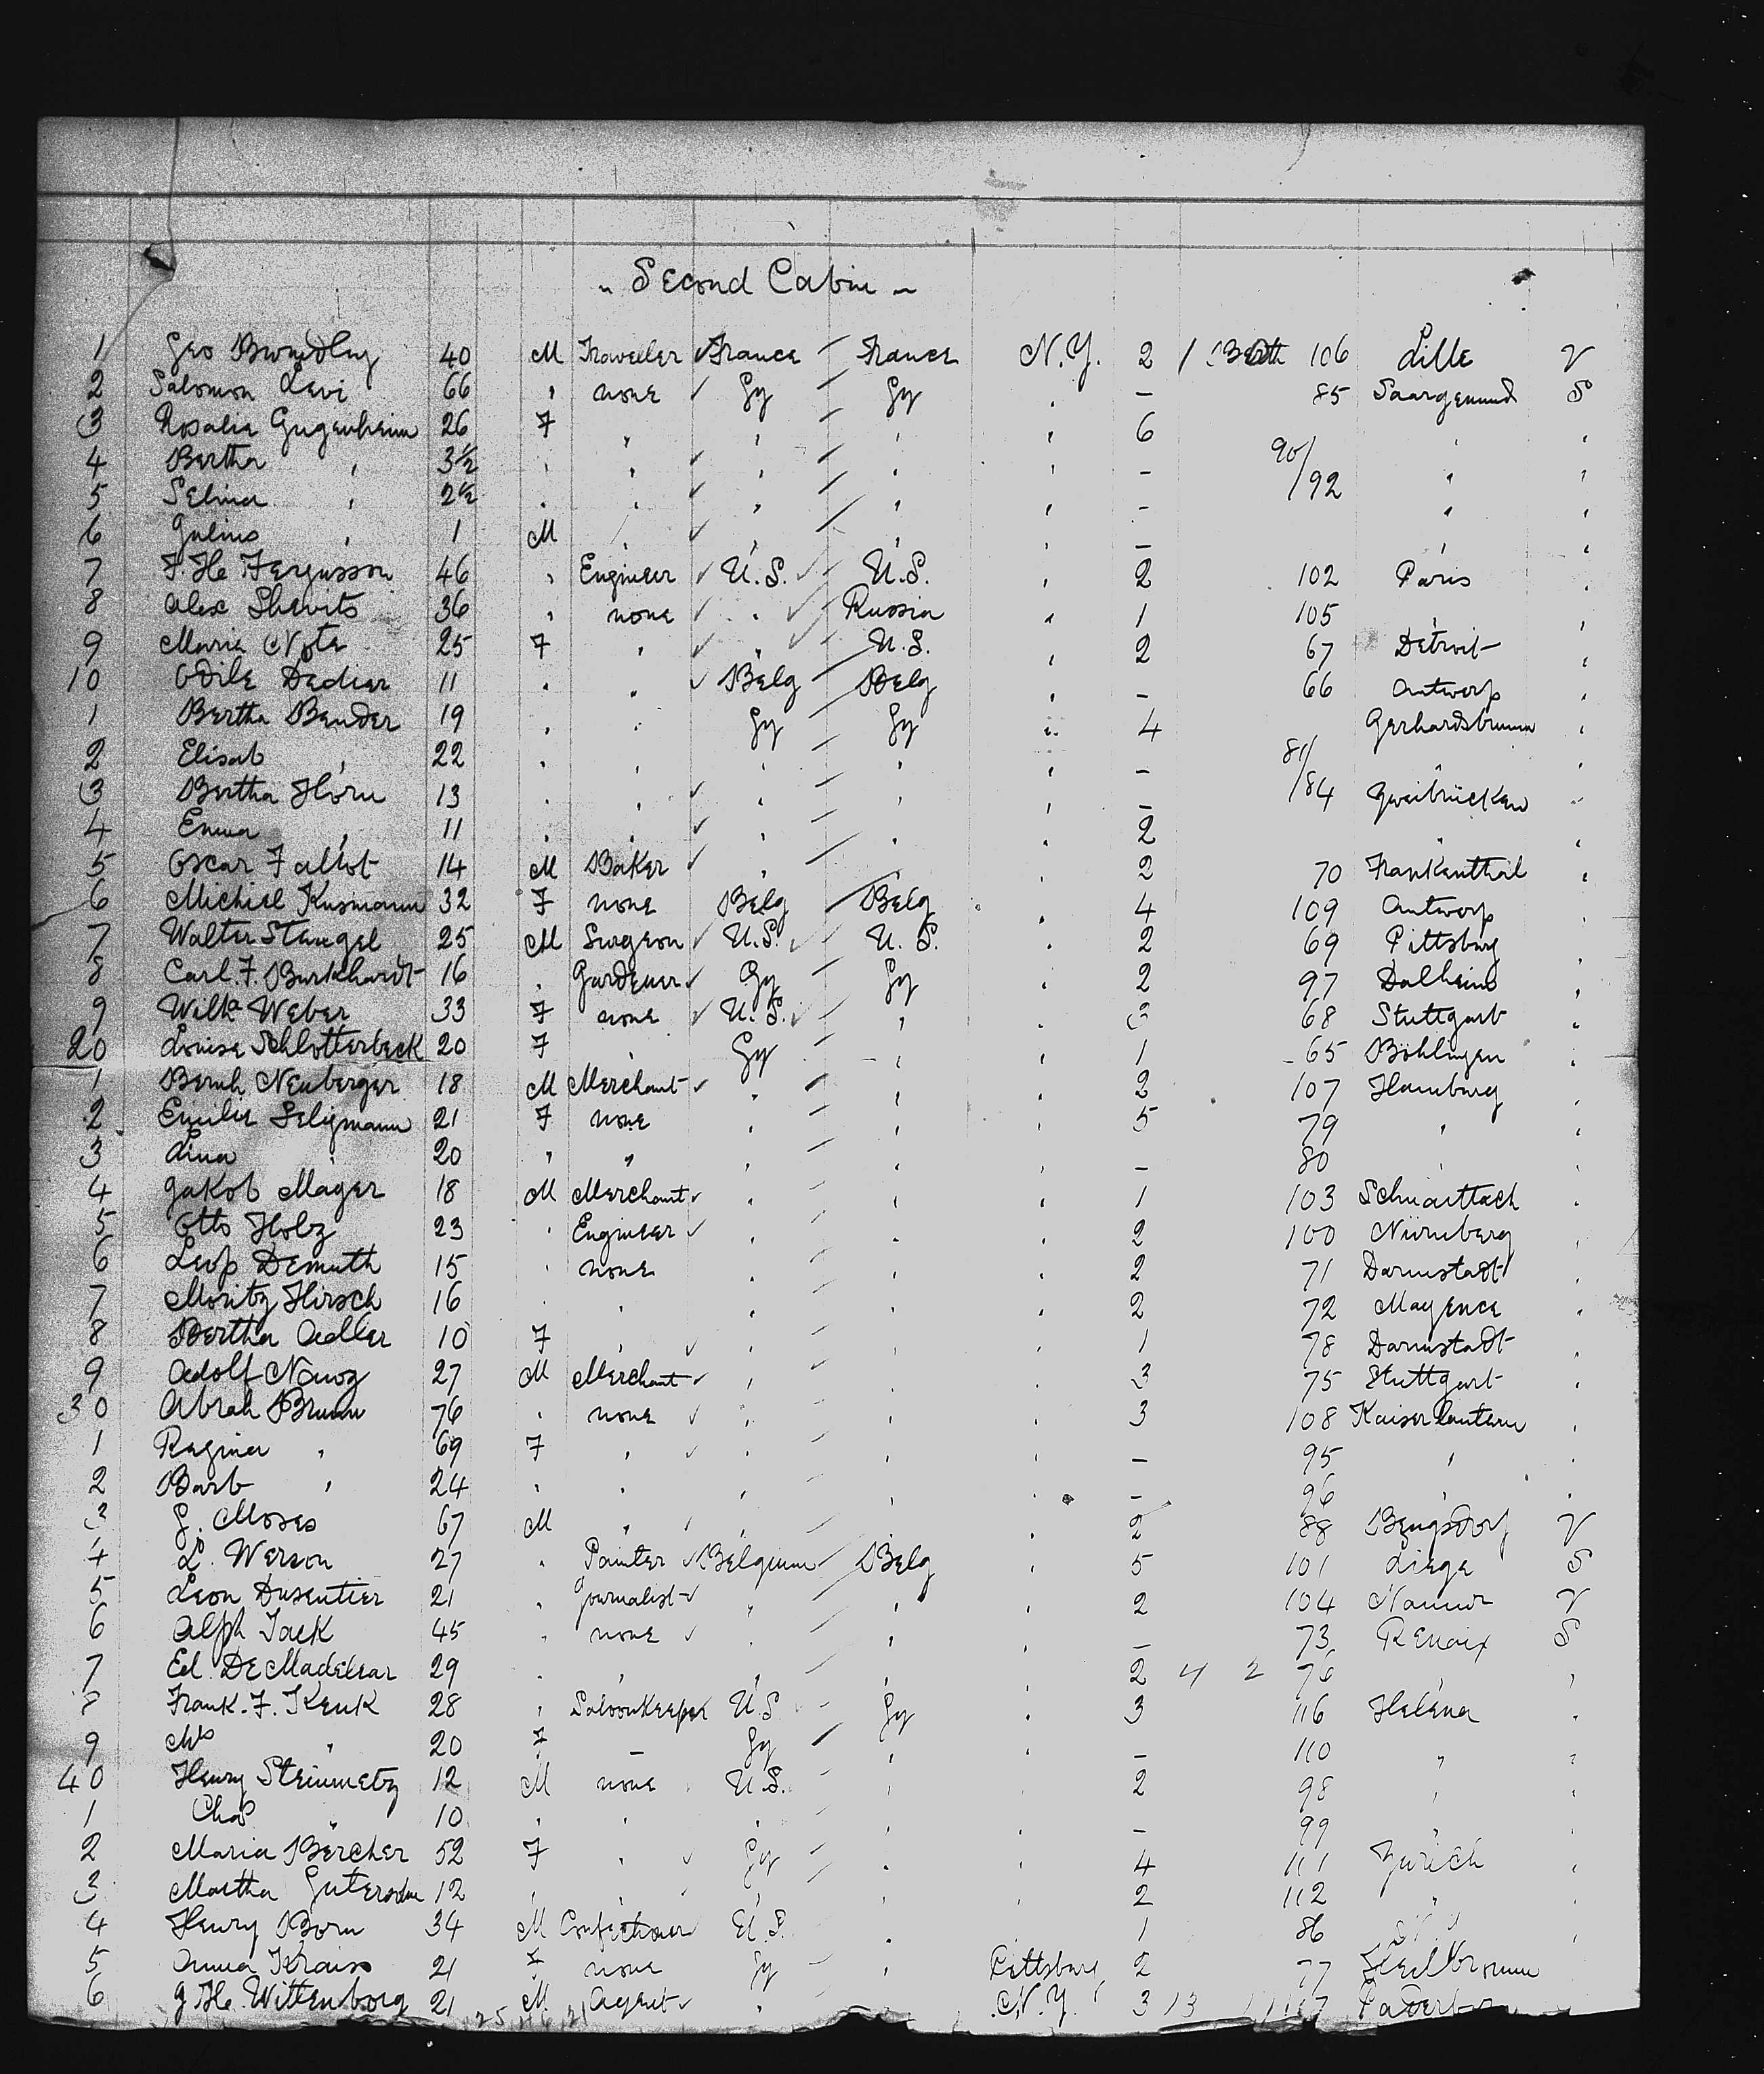 " Second Cabin "
1 Geo 40 M Traveller ✓ France / France N.Y. 2 / Berth 106 Lille V
2 Salomon Levi 66 " none ✓ Gy / Gy " - 85 Saargemund S
3 Rosalia Gugenheim 26 F " " / " " 6 " "
4 Bertha " 3½ " " ✓ " / " " - 90/ " "
5 Selina " 2½ " " ✓ " / " " - /92 " "
6 Julius " 1 M " ✓ " / " " - " "
7 F. He Fergusson 46 " Engineer ✓ U.S. ✓ U.S. " 2 102 Paris
8 Alex Shevits 36 " none ✓ " ✓ Russia " 1 105 "
9 Maria Note 25 F " ✓ " ✓ U.S. " 2 67 Detroit "
10 Odile Dedier 11 " " ✓ Belg / Belg " - 66 Antwerp "
1 Bertha Bender 19 " " Gy / Gy " 4 Gerhardsbrunn "
2 Elisab " 22 " " " / " " - 81/ " "
3 Bertha Horn 13 " " ✓ " / " " - /84 Zweibrücken "
4 Emma " 11 " " ✓ " / " " 2 " "
5 Oscar 14 M Baker ✓ " / " " 2 70 Frankenthal "
6 Michiel Kusmann 32 F none Belg / Belg " 4 109 Antwerp "
7 Walter Stengel 25 M Surgeon ✓ U.S. ✓ U.S. " 2 69 Pittsburg "
8 Carl. F. Burkhardt 16 " Gardener ✓ Gy / Gy " 2 97 Dalheim "
9 Wilh.a Weber 33 F none ✓ U.S. ✓ " " 3 68 Stuttgart "
20 Louise Schlotterbeck 20 F " Gy / " " 1 65 Böhlingen "
1 Bernh Neuberger 18 M Merchant ✓ " / " " 2 107 Hamburg "
2 Emilie Seligmann 21 F none " / " " 5 79 " "
3 Lina " 20 " " " / " " - 80 " "
4 Jakob Mager 18 M Merchant ✓ " / " " 1 103 Schnaittach "
5 Otto Holz 23 " Engineer ✓ " / " " 2 100 Nürnberg "
6 Leop Demuth 15 " none " / " " 2 71 Darmstadt "
7 Moritz Hirsch 16 " " " / " " 2 72 Mayence "
8 Bertha Adler 10 F " ✓ " / " " 1 78 Darmstadt "
9 Adolf 27 M Merchant ✓ " / " " 3 75 Stuttgart "
30 Abrah Brunn 76 " none ✓ " / " " 3 108 Kaiserlautern "
1 Regina " 69 F " ✓ " / " " - 95 " "
2 Barb " 24 " " " / " " - 96 " "
3 J. Moses 67 M " " / " " 2 88 V
4 L. Werson 27 " Painter ✓ Belgium / Belg " 5 101 Liege S
5 Leon Dusentier 21 " Journalist ✓ " / " " 2 104 Namur V
6 Alph Jack 45 " none ✓ " / " " - 73 Renaix S
7 Ed. 29 " " " / " " 2 4 2 76 " "
8 Frank. F. Kenk 28 " Saloonkeeper U.S. - Gy " 3 116 Helena "
9 Ms " 20 F - Gy / " " - 110 " "
40 Henry Steinmetz 12 M none U.S. " " 2 98 " "
1 Chas " 10 " " " / " " - 99 " "
2 Maria Bercher 52 F " ✓ Gy / " " 4 111 Zurich "
3 Martha 12 " " ✓ " / " " 2 112 " "
4 Henry Born 34 M Confectioner U.S. " " 1 86 "
5 Anna Kraiss 21 F none Gy - " Pittsburg 2 77
6 J He. Wittenborg 21 M Agent ✓ " " N.Y. 3 13